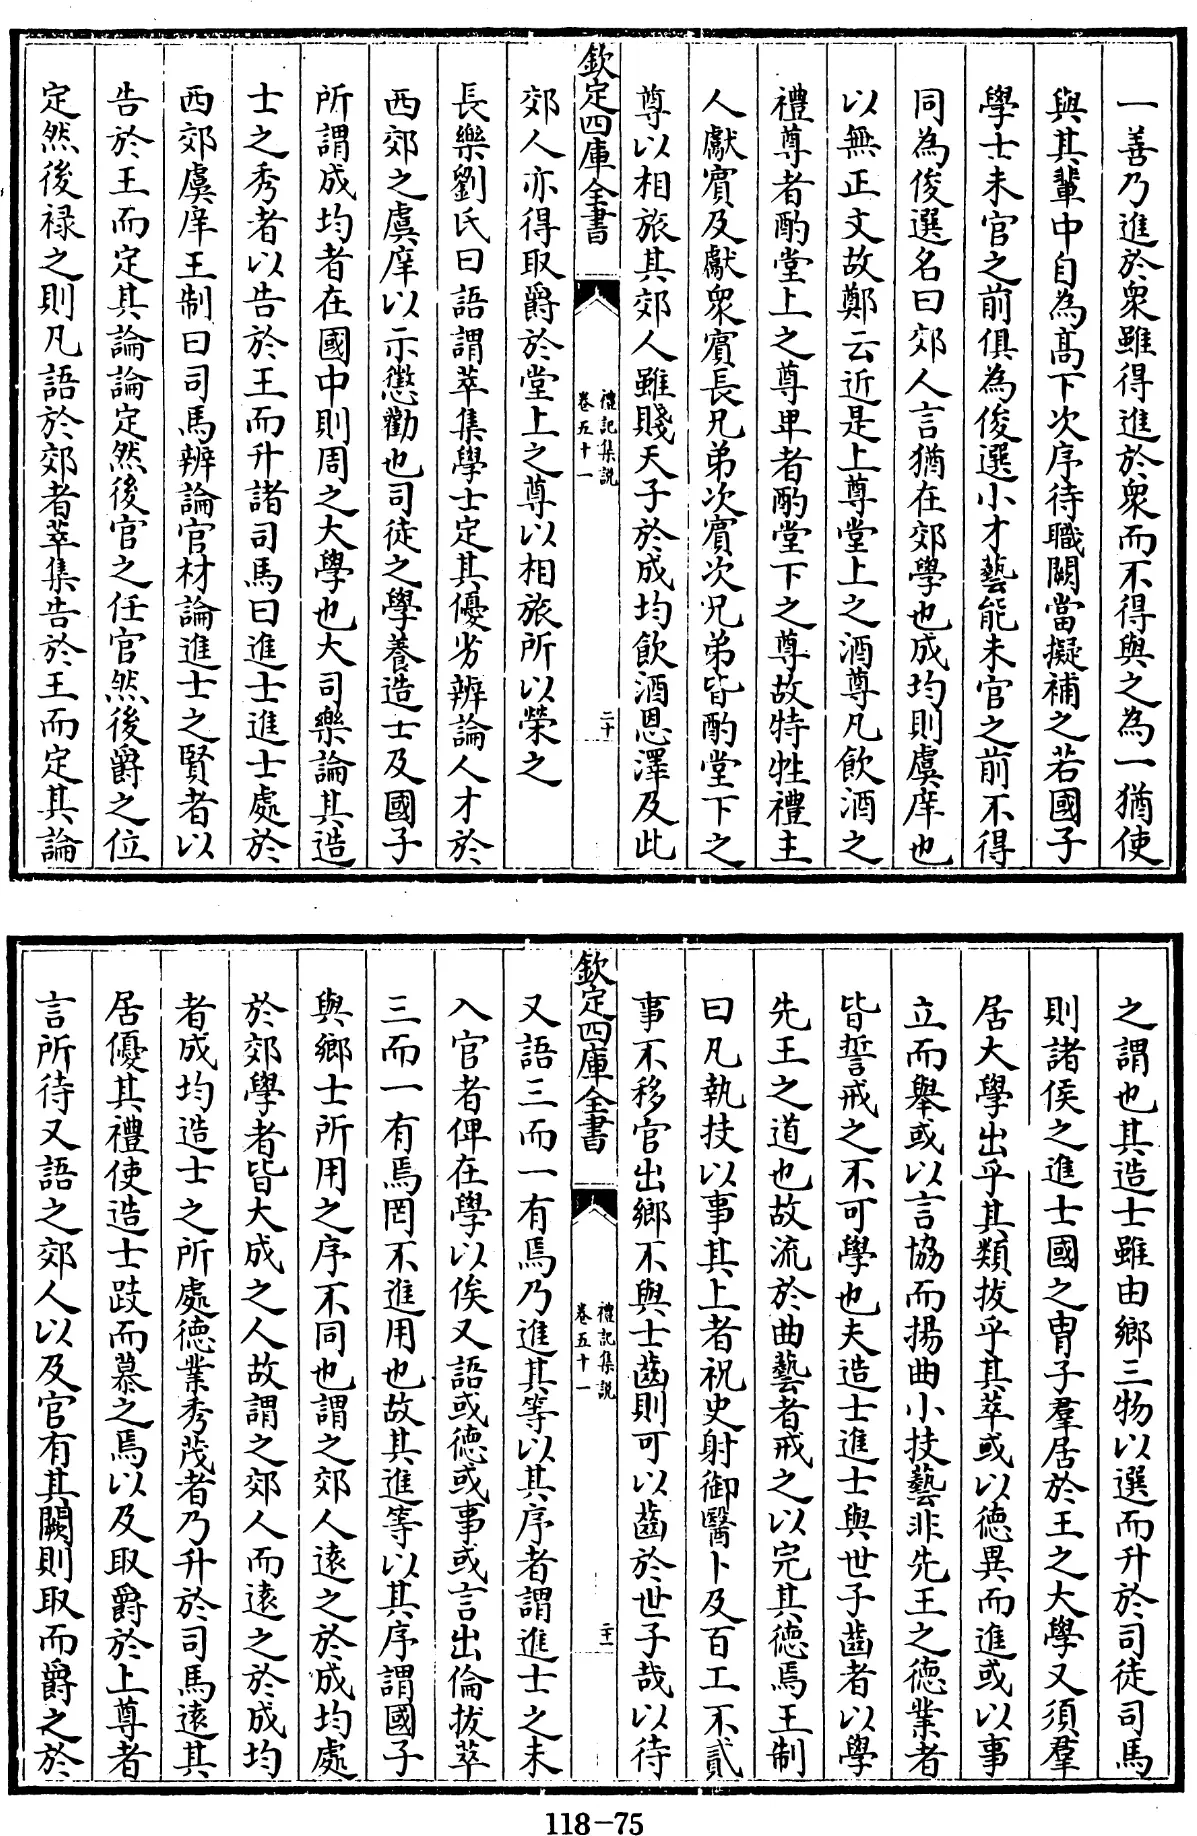 一善乃進於衆雖得進於衆而不得與之為一猶使
與其輩中自為髙下次序待職闕當擬補之若國子
學士未官之前俱為俊選小才藝能未官之前不得
同為俊選名曰郊人言猶在郊學也成均則虞庠也
以無正文故鄭云近是上尊堂上之酒尊凡飲酒之
禮尊者酌堂上之尊卑者酌堂下之尊故特牲禮主
人獻賔及獻衆賔長兄弟次賔次兄弟皆酌堂下之
尊以相旅其郊人雖賤天子於成均飲酒恩澤及此
欽定四庫全書
禮記集説
卷五十一
二十
郊人亦得取爵於堂上之尊以相旅所以榮之
長樂劉氏曰語謂萃集學士定其優劣辨論人才於
西郊之虞庠以示懲勸也司徒之學養造士及國子
所謂成均者在國中則周之大學也大司樂論其造
士之秀者以告於王而升諸司馬曰進士進士處於
西郊虞庠王制曰司馬辨論官材論進士之賢者以
告於王而定其論論定然後官之任官然後爵之位
定然後禄之則凡語於郊者萃集告於王而定其論
之謂也其造士雖由鄉三物以選而升於司徒司馬
則諸侯之進士國之胄子羣居於王之大學又須羣
居大學出乎其類拔乎其萃或以徳異而進或以事
立而舉或以言協而揚曲小技藝非先王之徳業者
皆誓戒之不可學也夫造士進士與世子齒者以學
先王之道也故流於曲藝者戒之以完其徳焉王制
曰凡執技以事其上者祝史射御醫卜及百工不貳
事不移官出鄉不與士齒則可以齒於世子哉以待
欽定四庫全書
禮記集説
卷五十一
二十一
又語三而一有焉乃進其等以其序者謂進士之未
入官者俾在學以俟又語或徳或事或言出倫拔萃
三而一有焉罔不進用也故其進等以其序謂國子
與鄉士所用之序不同也謂之郊人逺之於成均處
於郊學者皆大成之人故謂之郊人而逺之於成均
者成均造士之所處徳業秀茂者乃升於司馬逺其
居優其禮使造士跂而慕之焉以及取爵於上尊者
言所待又語之郊人以及官有其闕則取而爵之於
118-75